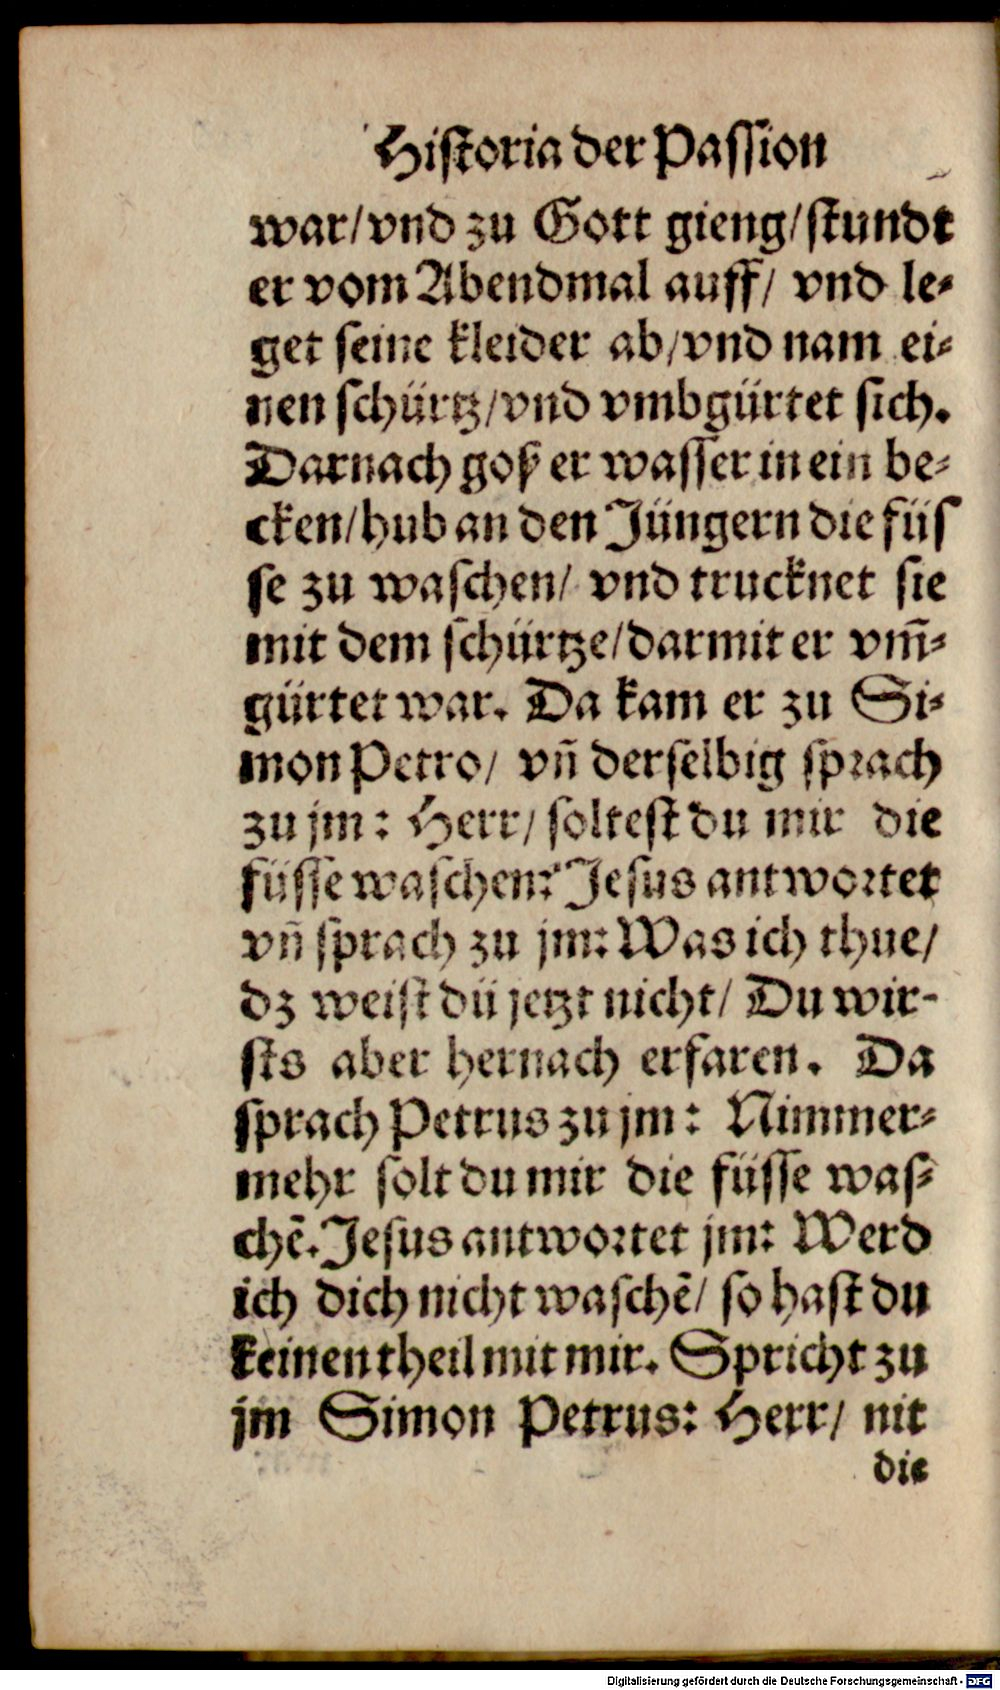 Historia der Passion
war/vnd zu Gott gieng/stundt
er vom Abendmal auff/ vnd le-
get seine kleider ab/vnd nam ei-
nen schürtz/vnd vmbgürtet sich.
Darnach goß er wasser in ein be-
cken/hub an den Jüngern die füs
se zu waschen/ vnd trucknet sie
mit dem schürtze/darmit er vm̄-
gürtet war. Da kam er zu Si-
mon Petro/ vn̄ derselbig sprach
zu jm: Herr/ soltest du mir die
füsse waschen? Jesus antwortet
vn̄ sprach zu jm: Was ich thue/
dz weist dü jetzt nicht/ Du wir-
sts aber hernach erfaren. Da
sprach Petrus zu jm: Nimmer-
mehr solt du mir die füsse was-
chē. Jesus antwortet jm: Werd
ich dich nicht waschē/ so hast du
keinen theil mit mir. Spricht zu
jm Simon Petrus: Herr/ nit
die
Digitalisierung gefördert durch die Deutsche Forschungsgemeinschaft - DFG